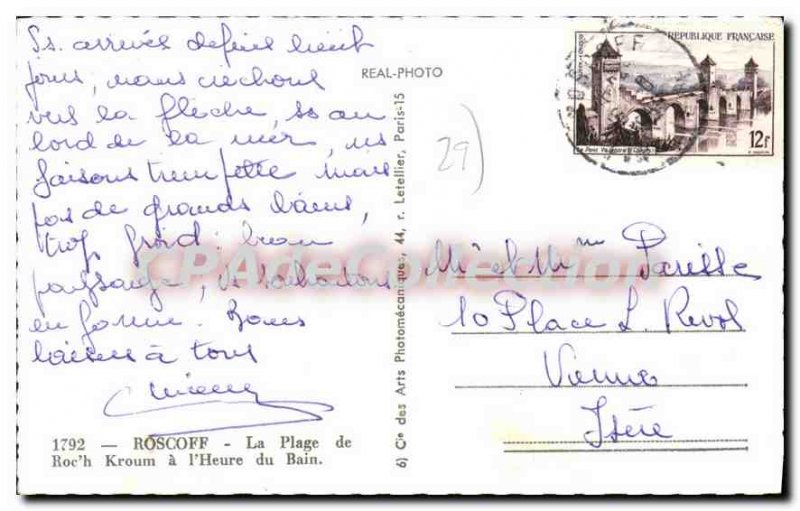 Ss. arrivés depuis huit
jours, nous
vers la flèche, ss au
bord de la mer, ns
faisons trempette mais
pas de grands bains,
trop froid. beau
paysage, souhaitons
en forme. Bons
baisers à tous
1792 — ROSCOFF - La Plage de
Roc'h Kroum à l'Heure du Bain.
REAL-PHOTO
6) Cie des Arts Photomécaniques, 44, r. Letellier, Paris-15
29)
CPAdeCollection
ROSCOFF
REPUBLIQUE FRANÇAISE
12F
Le Pont Valentré Cahors
Mr et Mme Parisse
10 Place L. Revol
Vienne
Isère